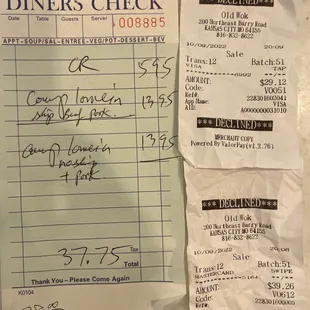 DINERS CHECK
Date Table Guests Server
008885
APPT-SOUP/SAL-ENTREE-VEG/POT-DESSERT-BEV
CR 595
Comb lomein 13.95
shp Beef pork.
Comb lomein 1395
no shp
+ pork
37.75 Tax
Total
Thank You – Please Come Again
K0104
Old Wok
200 Northeast Barry Road
KANSAS CITY MO 64155
816-832-8622
10/09/2022 20:09
Sale
Trans:12 Batch:51
VISA 6992 TAP
AMOUNT: $29.12
Code: V0051
Ref#: 228301602041
App Name: VISA
AID: A0000000031010
*** DECLINED ***
MERCHANT COPY
Powered By ValorPay(v1.2.76)
*** DECLINED ***
Old Wok
200 Northeast Barry Road
KANSAS CITY MO 64155
816-832-8622
10/09/2022 20:08
Sale
Trans:12 Batch:51
MASTERCARD 5164 SWIPE
AMOUNT: $39.26
Code: V0612
Ref#: 228301600005